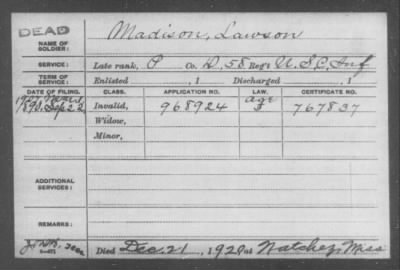 DEAD
Madison, Lawson
NAME OF SOLDIER:
SERVICE: Late rank, P Co. D, 58 Reg't U.S.C. Inf
TERM OF SERVICE: Enlisted , 1 Discharged , 1
DATE OF FILING. CLASS. APPLICATION NO. LAW. CERTIFICATE NO.
1907
Age
1890, Sep 22 Invalid, 968924 767837
Widow,
Minor,
ADDITIONAL SERVICES:
REMARKS:
Died Dec. 21, 1920 at Natchez, Miss